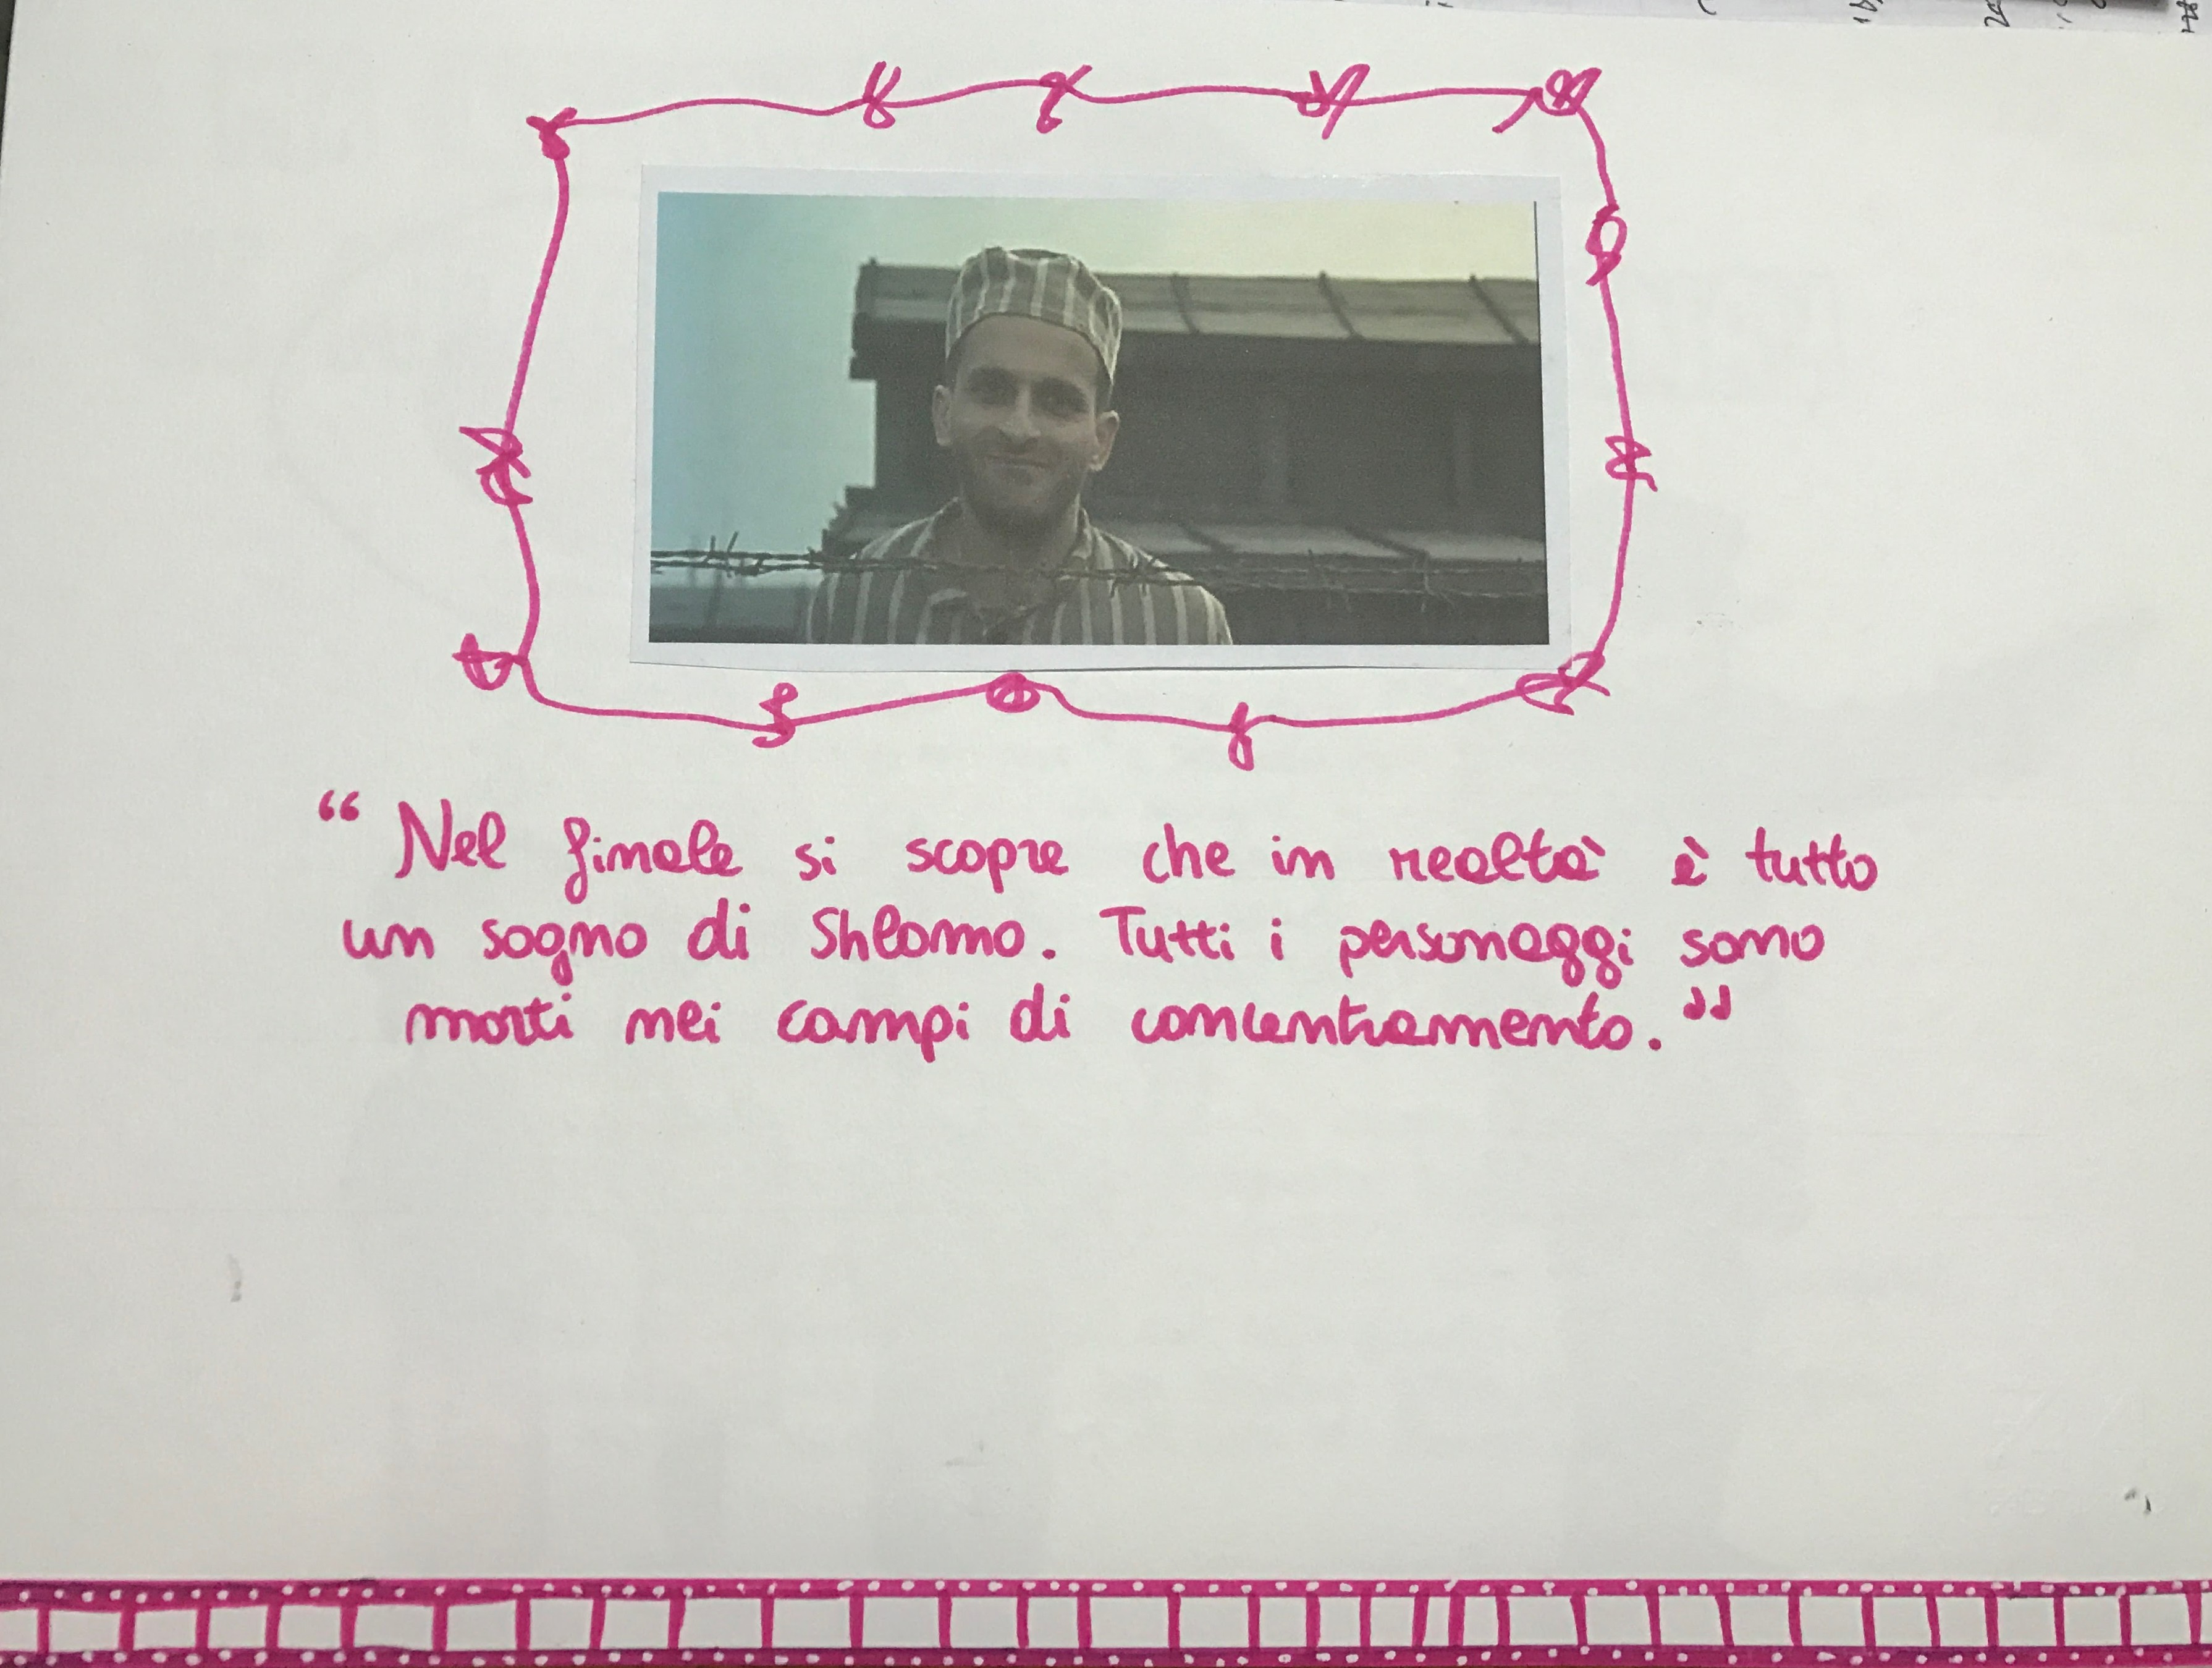 “Nel finale si scopre che in realtà è tutto
un sogno di Shlomo. Tutti i personaggi sono
morti nei campi di concentramento.”